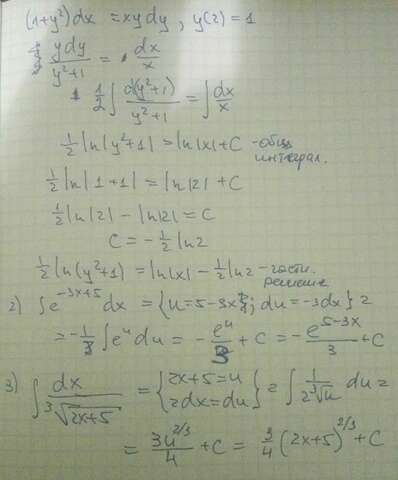 (1+y²)dx = xydy, y(2)=1
ydy/(y²+1) = dx/x
1/2 ∫ d(y²+1)/(y²+1) = ∫ dx/x
1/2 ln|y²+1| = ln|x| + C - общ
интеграл.
1/2 ln|1+1| = ln|2| + C
1/2 ln|2| - ln|2| = C
C = -1/2 ln2
1/2 ln(y²+1) = ln|x| - 1/2 ln2 - частн.
решение
2) ∫e^(-3x+5) dx = {u=5-3x; du=-3dx} =
= -1/3 ∫e^u du = -e^u/3 + C = -e^(5-3x)/3 + C
3) ∫ dx/∛(2x+5) = {2x+5=u
2dx=du} = ∫ 1/(2∛u) du =
= 3u^(2/3)/4 + C = 3/4 (2x+5)^(2/3) + C